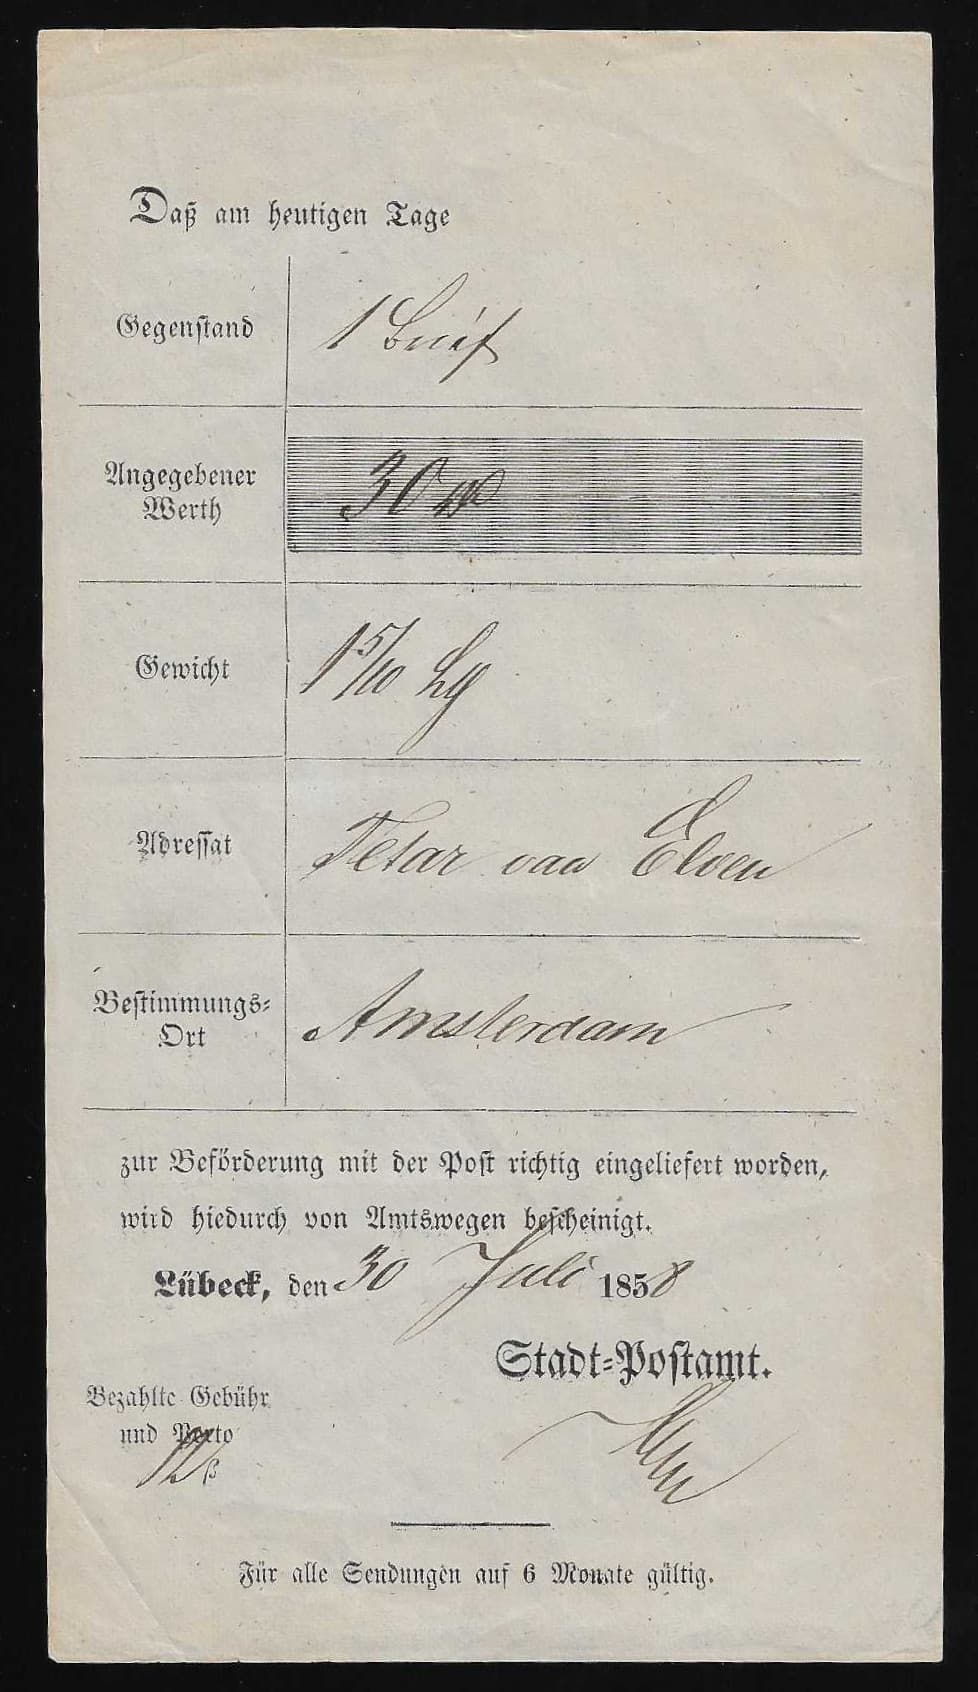 Daß am heutigen Tage
Gegenstand
1 Brief
Angegebener
Werth
30
Gewicht
1 5/10 Lg
Adressat
Tetar van Elven
Bestimmungs-
Ort
Amsterdam
zur Beförderung mit der Post richtig eingeliefert worden,
wird hiedurch von Amtswegen bescheinigt.
Lübeck, den 30 Juli 1858
Stadt-Postamt.
Bezahlte Gebühr
und Porto
12 β
Für alle Sendungen auf 6 Monate gültig.